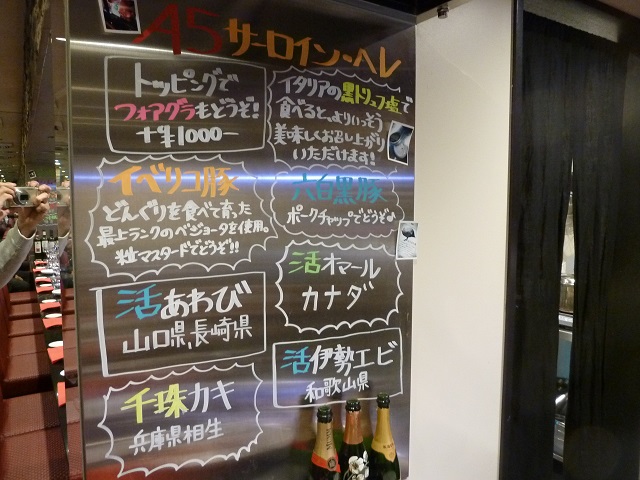 A5サーロイン・ヘレ
トッピングで
フォアグラもどうぞ!
+¥1000-
イタリアの黒トリュフ塩で
食べると、よりいっそう
美味しくお召し上がり
いただけます!
イベリコ豚
どんぐりを食べて育った
最上ランクのベジョータを使用。
粒マスタードでどうぞ!!
六白黒豚
ポークチャップでどうぞ♪
活あわび
山口県、長崎県
活オマール
カナダ
千珠カキ
兵庫県相生
活伊勢エビ
和歌山県